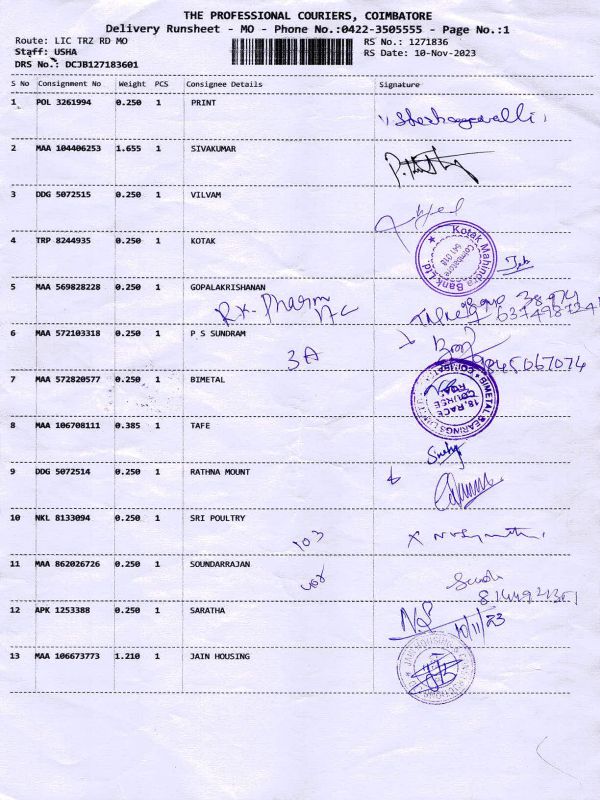 THE PROFESSIONAL COURIERS, COIMBATORE
Delivery Runsheet - MO - Phone No.:0422-3505555 - Page No.:1
Route: LIC TRZ RD MO RS No.: 1271836
Staff: USHA RS Date: 10-Nov-2023
DRS No.: DCJB127183601
S No Consignment No Weight PCS Consignee Details Signature
1 POL 3261994 0.250 1 PRINT
2 MAA 104406253 1.655 1 SIVAKUMAR
3 DDG 5072515 0.250 1 VILVAM
4 TRP 8244935 0.250 1 KOTAK
Kotak Mahindra Bank Ltd
Coimbatore
641 018
5 MAA 569828228 0.250 1 GOPALAKRISHANAN
Rx-Pharm
6 MAA 572103318 0.250 1 P S SUNDRAM
3A
845067074
7 MAA 572820577 0.250 1 BIMETAL
BIMETAL BEARINGS LIMITED
18, RACE
COURSE
ROAD
COIMBATORE
8 MAA 106708111 0.385 1 TAFE
9 DDG 5072514 0.250 1 RATHNA MOUNT
10 NKL 8133094 0.250 1 SRI POULTRY
103
11 MAA 862026726 0.250 1 SOUNDARRAJAN
12 APK 1253388 0.250 1 SARATHA
N.S
10/11/23
13 MAA 106673773 1.210 1 JAIN HOUSING
JAIN HOUSING &